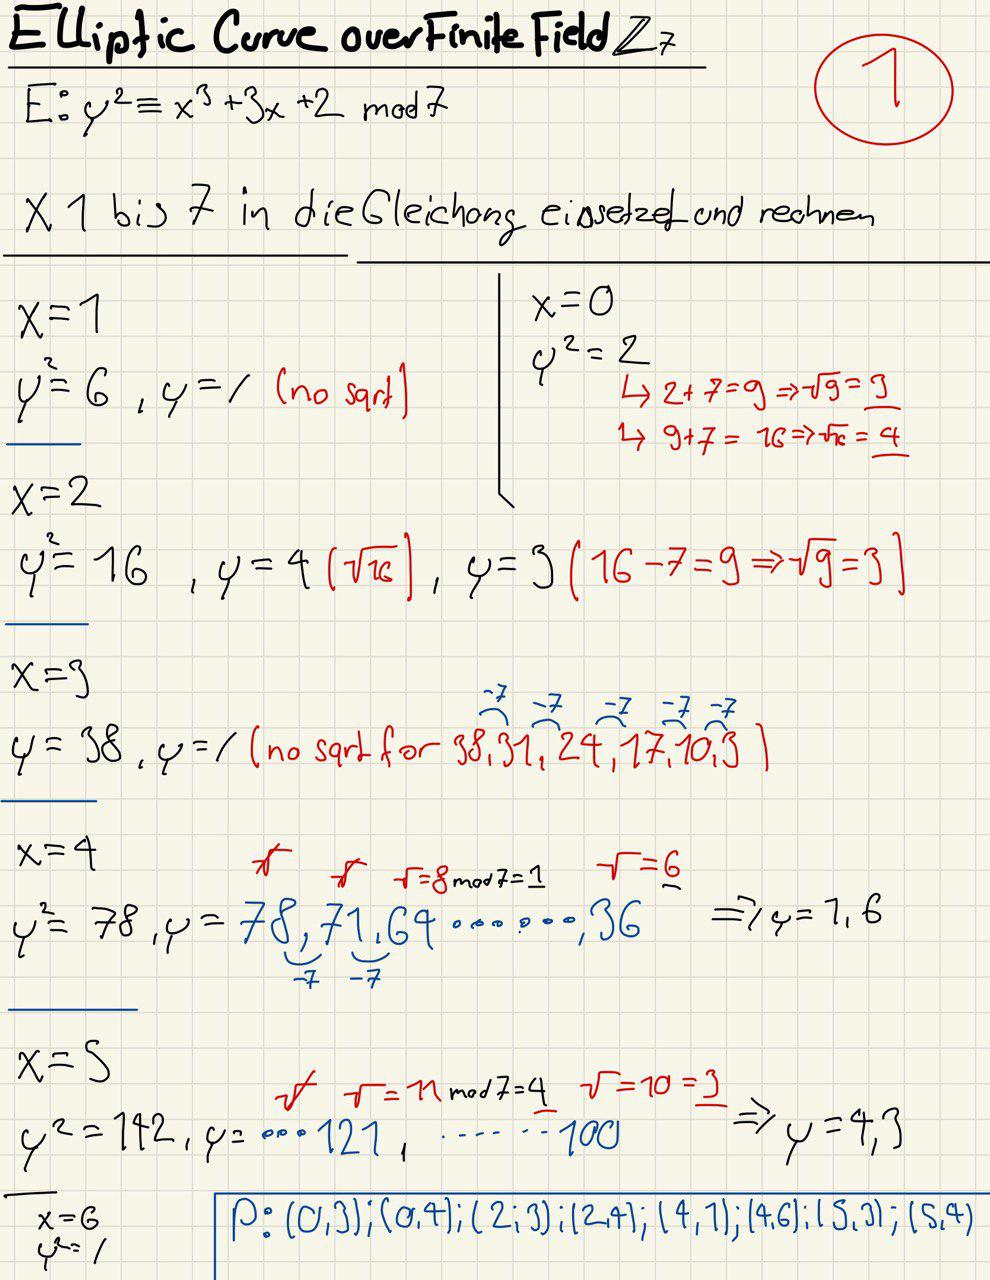 Elliptic Curve over Finite Field ℤ₇
1
E: y² ≡ x³ + 3x + 2 mod 7
X 1 bis 7 in die Gleichong einsetzet und rechnen
x = 1
y² = 6 , y = / (no sqrt)
x = 0
y² = 2
↳ 2 + 7 = 9 ⇒ √9 = 3
↳ 9 + 7 = 16 ⇒ √16 = 4
x = 2
y² = 16 , y = 4 (√16) , y = 3 (16 - 7 = 9 ⇒ √9 = 3)
x = 3
-7 -7 -7 -7 -7
y = 38 , y = / (no sqrt for 38, 31, 24, 17, 10, 3)
x = 4
√ √ √ = 8 mod 7 = 1 √ = 6
y² = 78 , y = 78, 71, 64 ......., 36 ⇒ y = 1, 6
-7 -7
x = 5
√ √ = 11 mod 7 = 4 √ = 10 = 3
y² = 142 , y = ... 121 , ....... 100 ⇒ y = 4, 3
x = 6
y² = /
P: (0,3); (0,4); (2;3); (2,4); (4,1); (4,6); (5,3); (5,4)